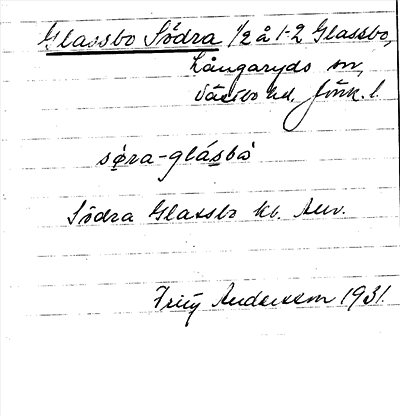 Glassbo Södra 1/2 å 1-2 Glassbo,
Långaryds sn,
Västbo hd. Jönk. l.
søra-glásbò
Södra Glassbo kb. Auv.
Fritz Andersson 1931.